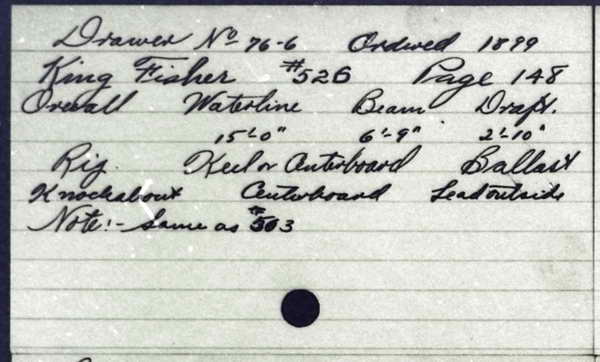 Drawer No 76-6 Ordered 1899
King Fisher #526 Page 148
Overall Waterline Beam Draft.
15'-0" 6'-9" 2'-10"
Rig. Keel or Centerboard Ballast
Knockabout Centerboard Lead outside
Note:- Same as #503